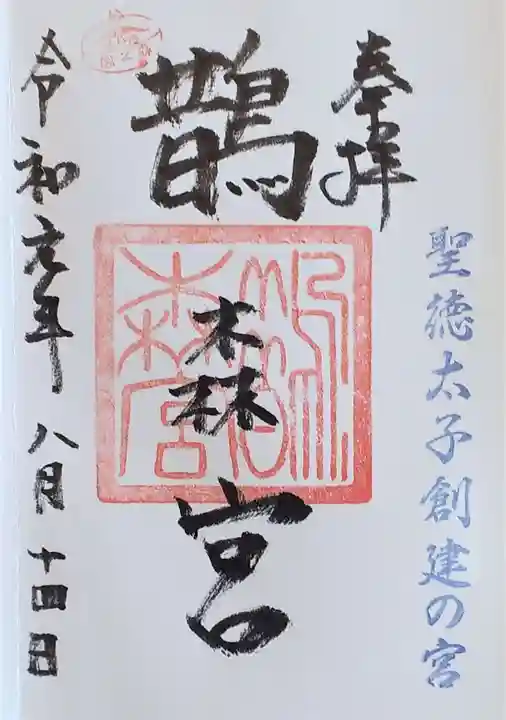 奉拝
聖徳太子創建の宮
鵲森宮
令和元年八月十四日